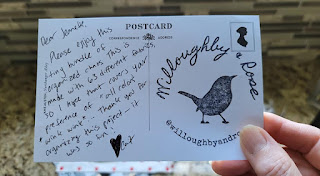 POSTCARD
CORRESPONDENCE ADDRESS
Dear
Please enjoy this
tiny bundle of
organized chaos. This is
made with 63 different fabrics.
So I hope that covers your
preference of "all colors"
wink wink... Thank you for
organizing this project.. it
was so fun!
Willoughby
& Rose
@willoughbyandro